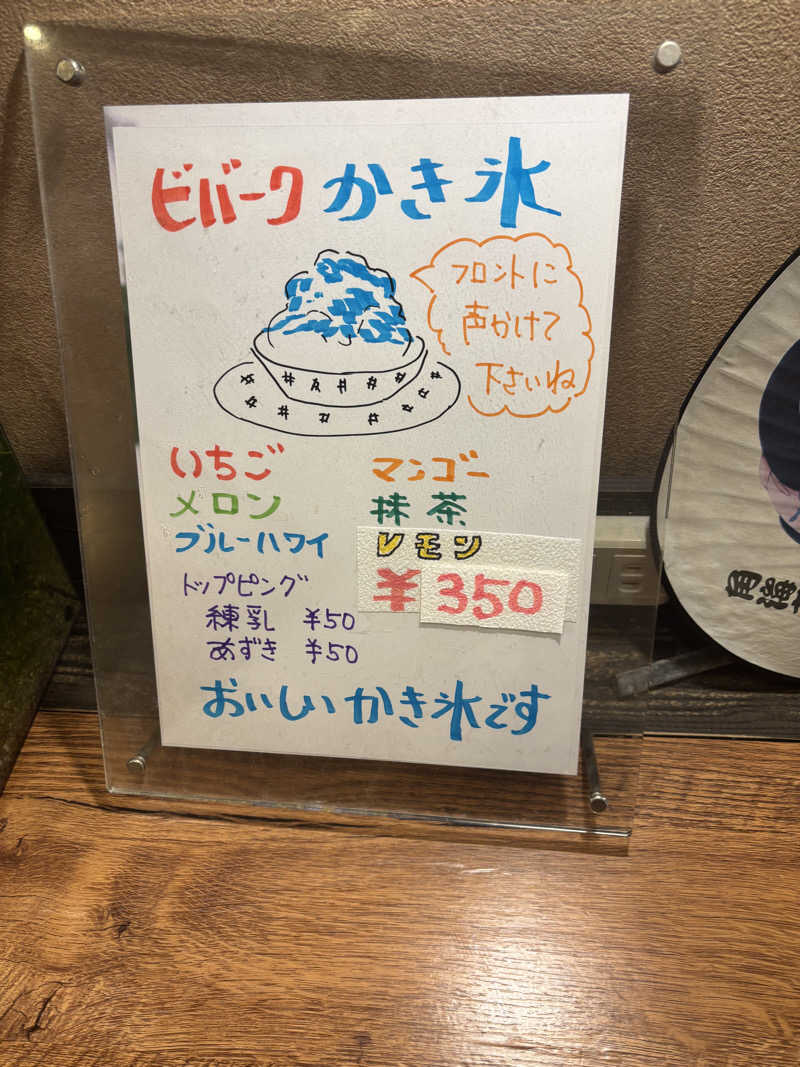 ビバーク かき氷
フロントに
声かけて
下さいね
いちご
メロン
ブルーハワイ
マンゴー
抹茶
レモン
¥350
トップピング
練乳 ¥50
あずき ¥50
おいしいかき氷です
角海